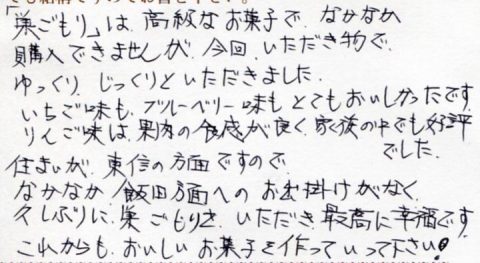 「巣ごもり」は、高級なお菓子で、なかなか
購入できませんが、今回、いただき物で、
ゆっくり、じっくりといただきました。
いちご味も、ブルーベリー味もとてもおいしかったです
りんご味は、果肉の食感が良く、家族の中でも好評
でした。
住まいが、東信の方面ですので、
なかなか、飯田方面へのお出掛けがなく、
久しぶりに、巣ごもりを、いただき、最高に幸福です
これからも、おいしいお菓子を作っていって下さい!